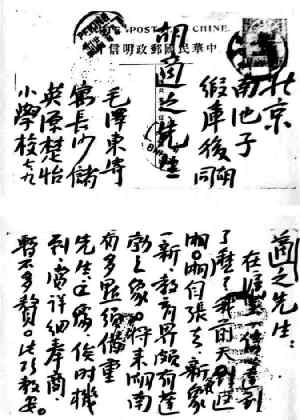 POST
CHINE
中華民國郵政明信
北京
南池子
緞庫後胡同
胡適之先生
毛澤東寄
寓長沙儲
英源楚怡
小學校 七九
適之先生:
在滬上一信達到
了麼?我前天返
湘。湘自張去,氣象
一新,教育界頗有蓬
勃之象。將來湖南
有多點須借重
先生,俟時機
到,當詳細奉商,
暫不多贅。此頌教安。